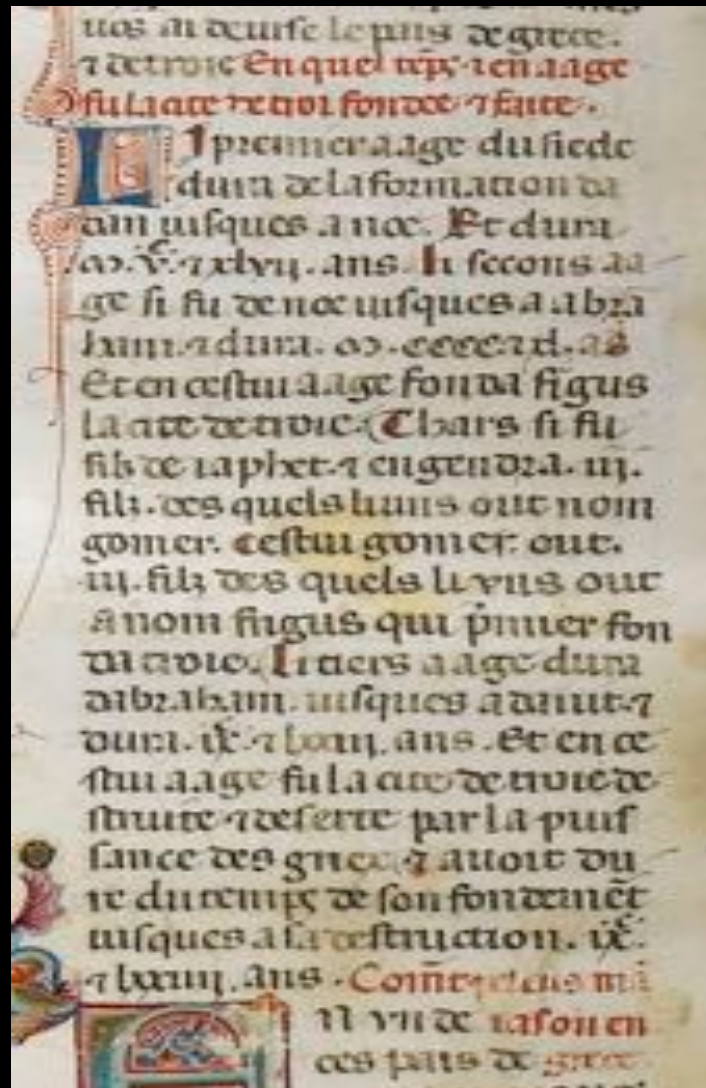 uos ai deuise le pais de grece.
⁊ de troie En quel tēps ⁊ en aage
fu la cite de troi fondee ⁊ faite.
LI premier aage du siecle
dura de la formation da
dam iusques a noe. Et dura
.ii. ⁊ xlvij. ans. li secons aa
ge si fu de noe iusques a abra
ham. ⁊ dura. cccc. ⁊ xl. as
Et en cestui aage fonda frigus
la cite de troie. Thars si fu
filz de iaphet. ⁊ engendra. iij.
filz. des quels li uns out nom
gomer. Cestui gomer. out.
iij. filz des quels li vns out
a nom frigus qui p̄mier fon
da troie. Li tiers aage dura
dabraham. iusques a dauit. ⁊
dura. ix.c ⁊ lxxiij. ans. Et en ce
stui aage fu la cite de troie de
struite ⁊ deserte par la puis
sance des griex. ⁊ auoit du
re du temps de son fondemēt
iusques a sa destruction. ix.c
⁊ lxxiiij. ans. Comēt peleus mā
iason en
ces pais de grece